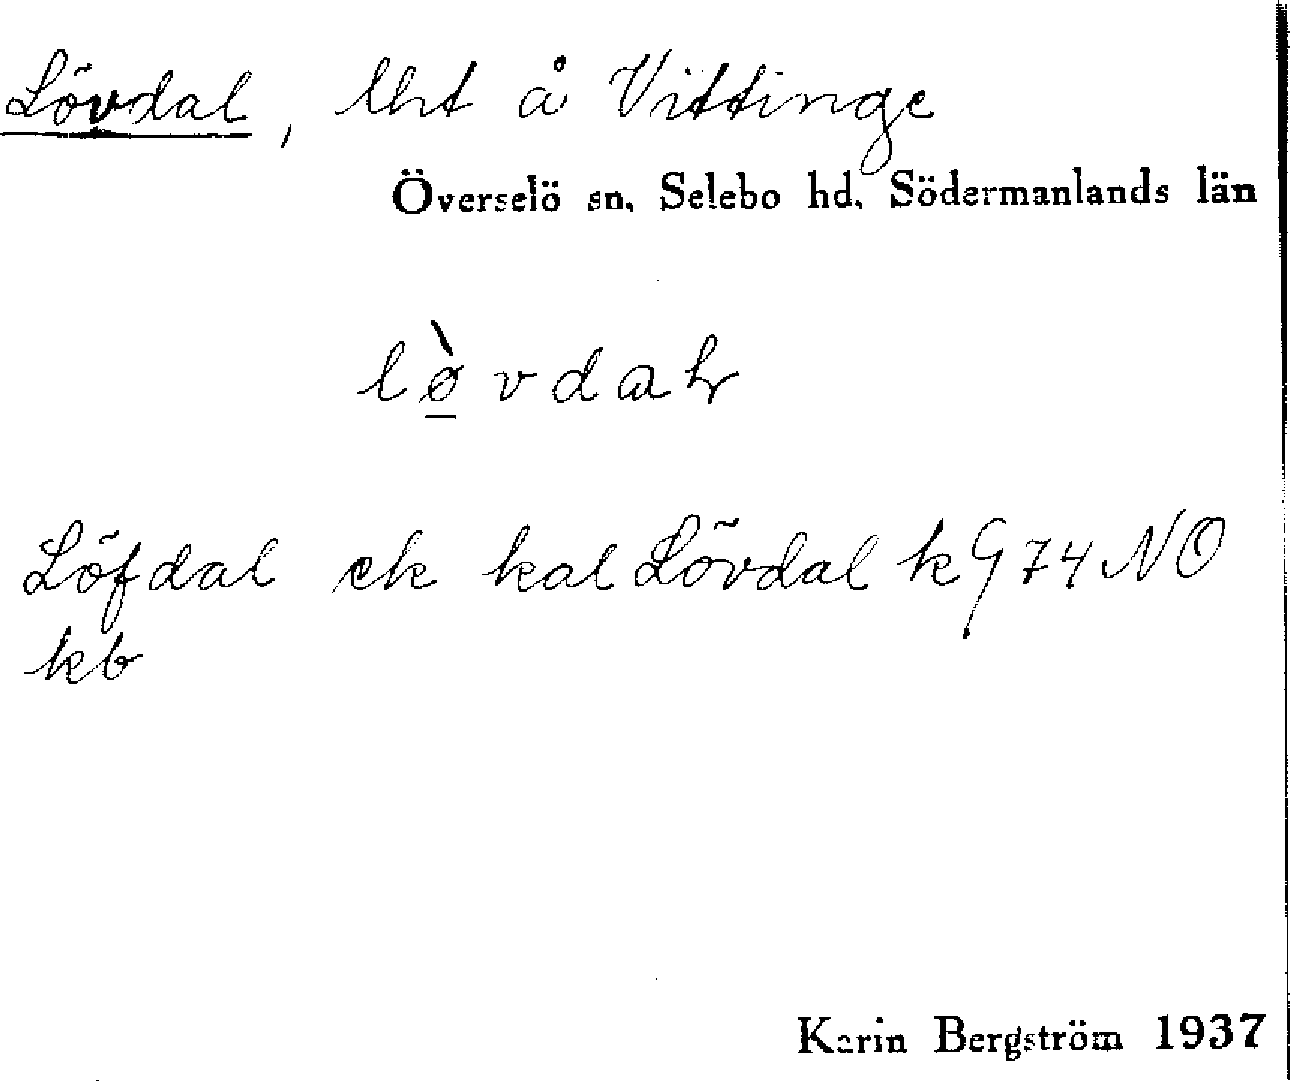 Lövdal, lht å Vittinge
Överselö sn, Selebo hd, Södermanlands län
lø̀vdaɫ
Löfdal ek kal Lövdal k G 74 NO
kb
Karin Bergström 1937